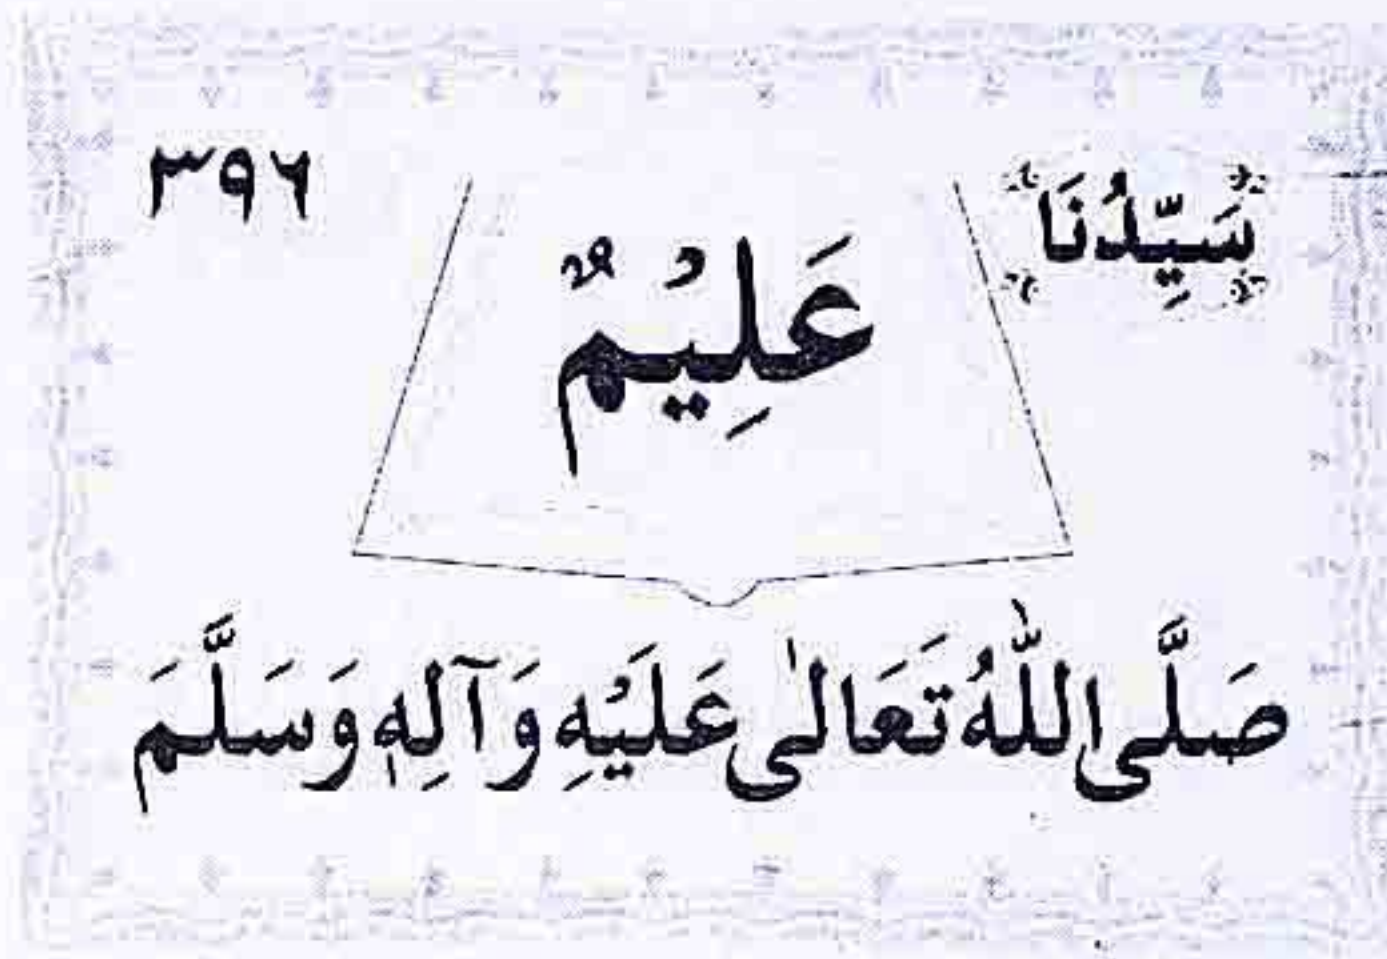 سَيِّدُنَا ٣٩٦
عَلِيْمٌ
صَلَّى اللّٰهُ تَعَالٰى عَلَيْهِ وَآلِهٖ وَسَلَّمَ